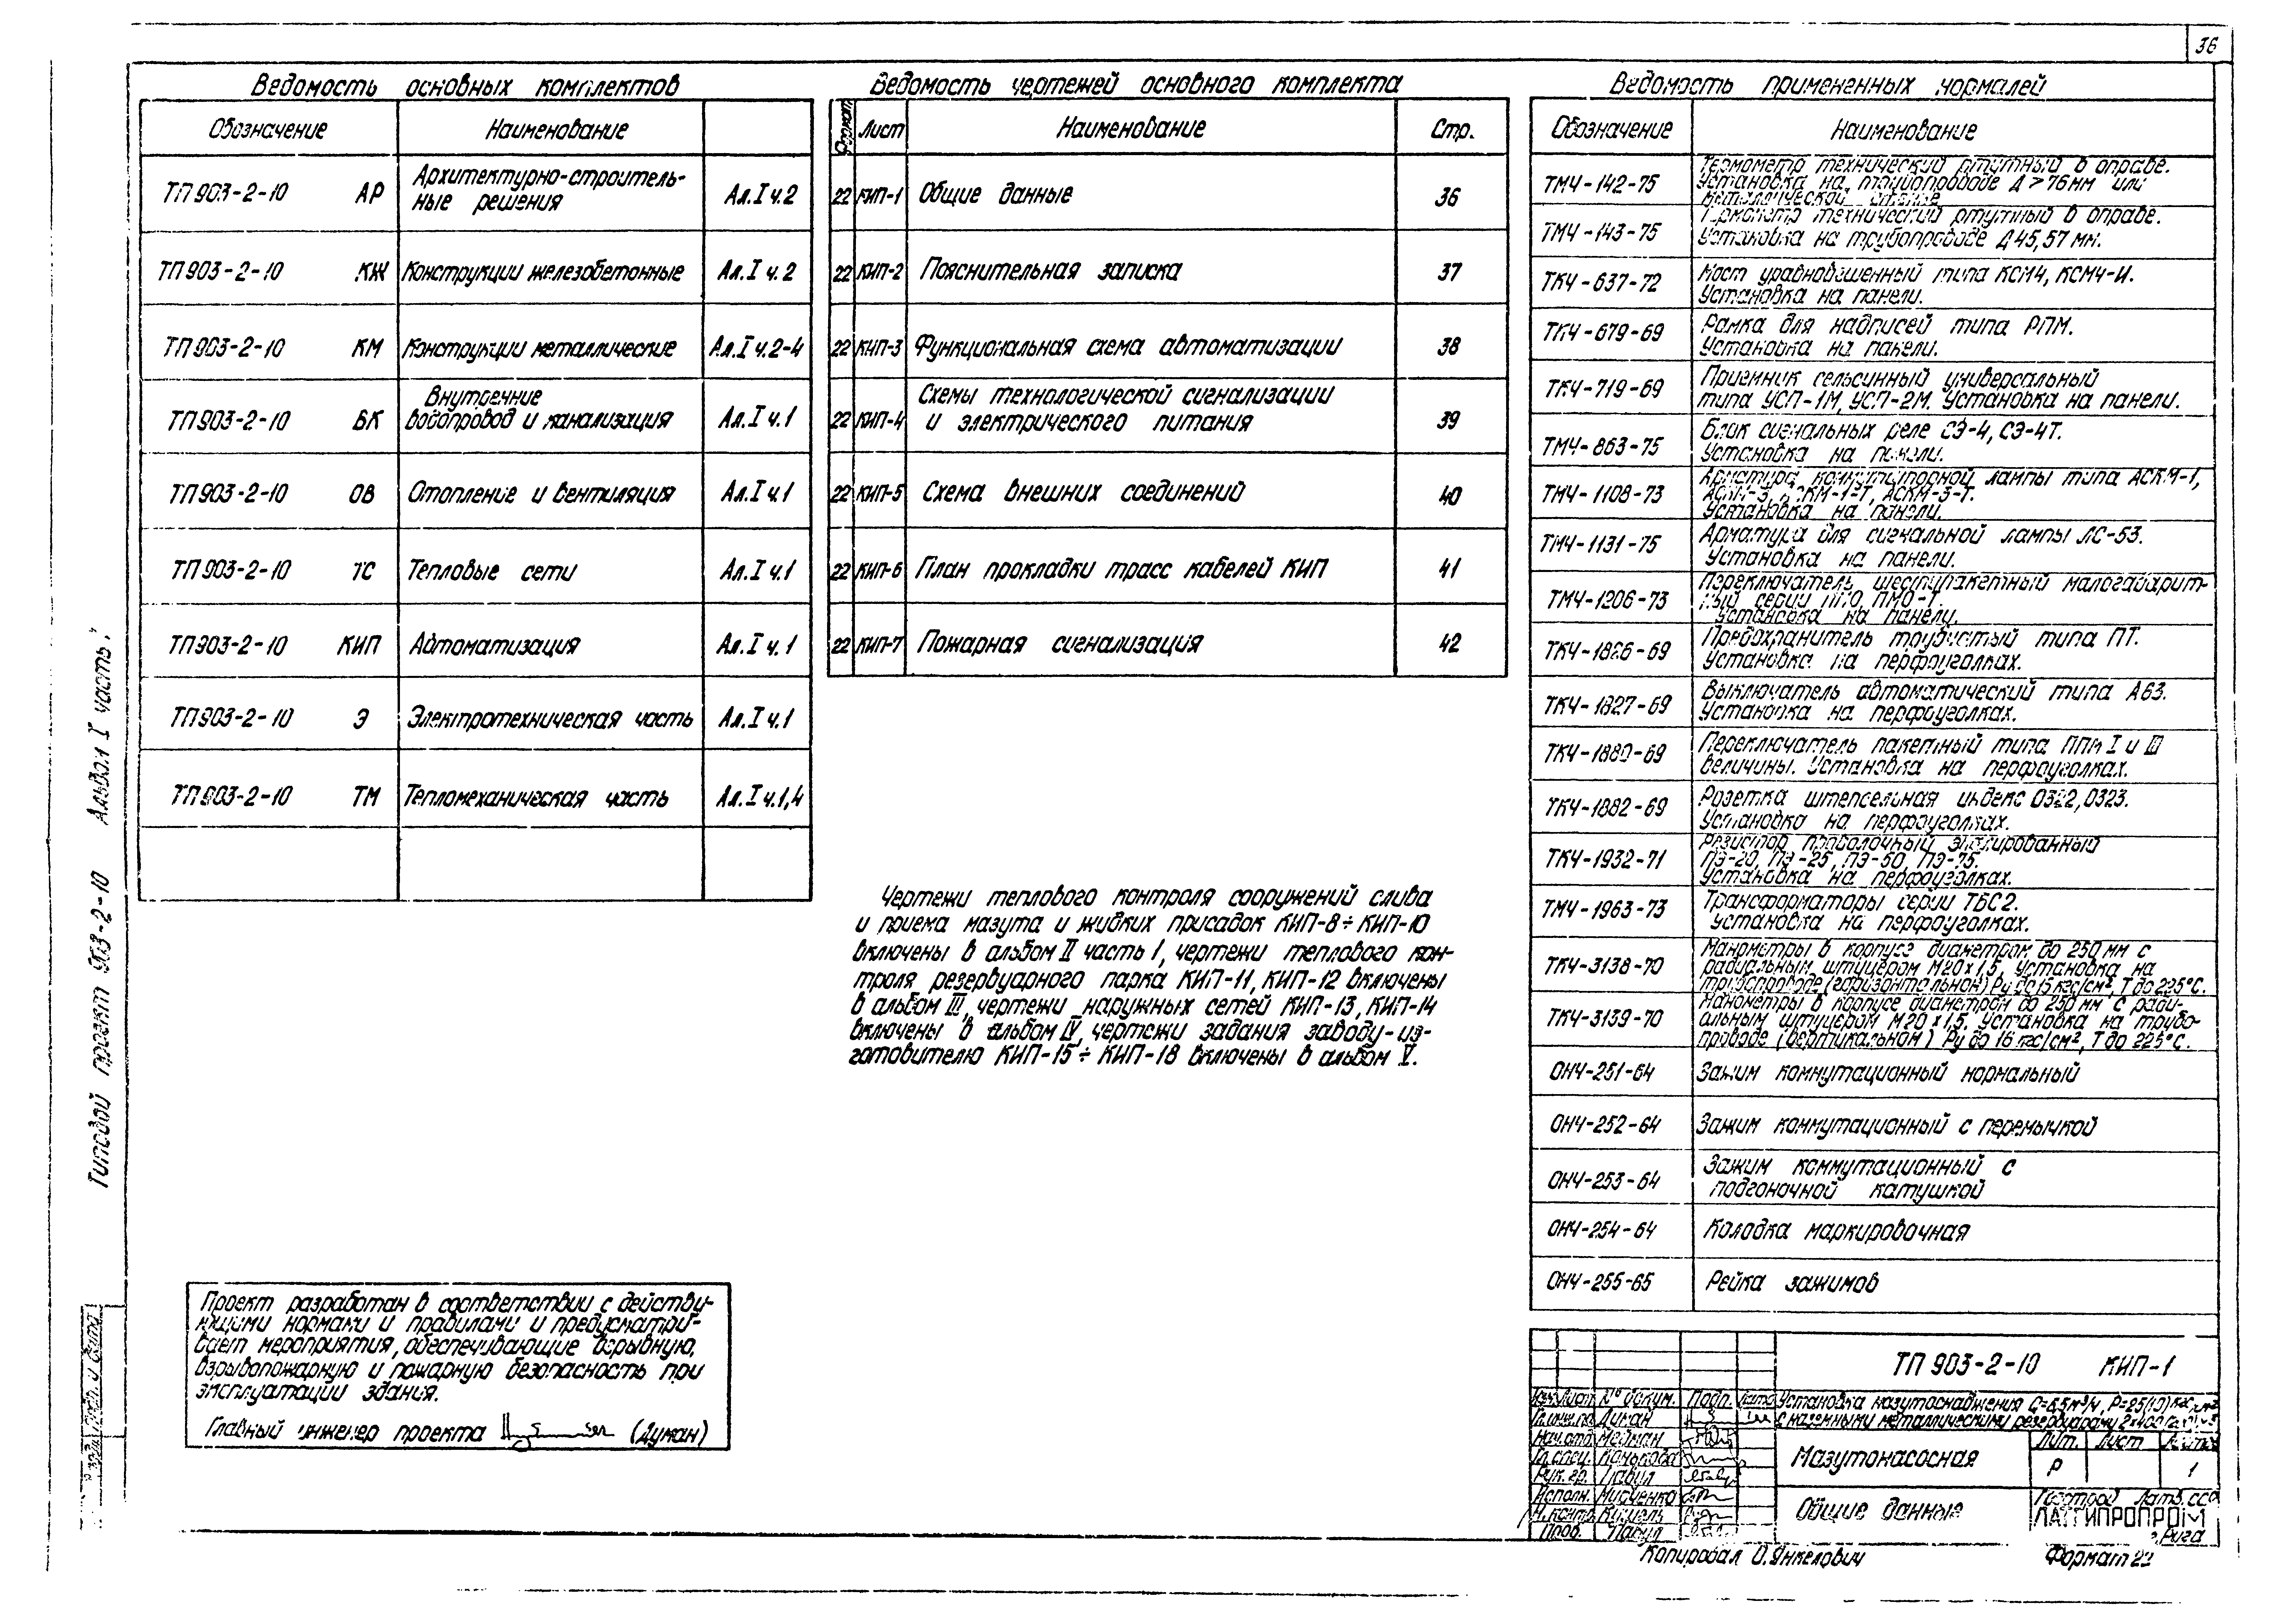 36
Ведомость основных комплектов
Обозначение Наименование
ТП 903-2-10 АР Архитектурно-строитель-
ные решения Ал.I ч.2
ТП 903-2-10 КЖ Конструкции железобетонные Ал.I ч.2
ТП 903-2-10 КМ Конструкции металлические Ал.I ч.2-4
ТП 903-2-10 ВК Внутренние
водопровод и канализация Ал.I ч.1
ТП 903-2-10 ОВ Отопление и вентиляция Ал.I ч.1
ТП 903-2-10 ТС Тепловые сети Ал.I ч.1
ТП 903-2-10 КИП Автоматизация Ал.I ч.1
ТП 903-2-10 Э Электротехническая часть Ал.I ч.1
ТП 903-2-10 ТМ Тепломеханическая часть Ал.I ч.1,4
Ведомость чертежей основного комплекта
Формат Лист Наименование Стр.
22 КИП-1 Общие данные 36
22 КИП-2 Пояснительная записка 37
22 КИП-3 Функциональная схема автоматизации 38
22 КИП-4 Схемы технологической сигнализации
и электрического питания 39
22 КИП-5 Схема внешних соединений 40
22 КИП-6 План прокладки трасс кабелей КИП 41
22 КИП-7 Пожарная сигнализация 42
Чертежи теплового контроля сооружений слива
и приема мазута и жидких присадок КИП-8÷КИП-10
включены в альбом II часть 1, чертежи теплового кон-
троля резервуарного парка КИП-11, КИП-12 включены
в альбом III, чертежи наружных сетей КИП-13, КИП-14
включены в альбом IV, чертежи задания заводу-из-
готовителю КИП-15÷КИП-18 включены в альбом V.
Ведомость примененных нормалей
Обозначение Наименование
ТМЧ-142-75 Термометр технический ртутный в оправе.
Установка на трубопроводе Д>76мм или
металлической стенке
ТМЧ-143-75 Термометр технический ртутный в оправе.
Установка на трубопроводе Д45,57мм.
ТКЧ-637-72 Мост уравновешенный типа КСМ4, КСМ4-И.
Установка на панели.
ТКЧ-679-69 Рамка для надписей типа РПМ.
Установка на панели.
ТКЧ-719-69 Приемник сельсинный универсальный
типа УСП-1М, УСП-2М. Установка на панели.
ТМЧ-863-75 Блок сигнальных реле СЭ-4, СЭ-4Т.
Установка на панели.
ТМЧ-1108-73 Арматура коммутаторной лампы типа АСКМ-1,
АСКМ-3, АСКМ-1-Т, АСКМ-3-Т.
Установка на панели.
ТМЧ-1131-75 Арматура для сигнальной лампы ЛС-53.
Установка на панели.
ТМЧ-1206-73 Переключатель шестипакетный малогабарит-
ный серии ПМО, ПМО-Т.
Установка на панели.
ТКЧ-1826-69 Предохранитель трубчатый типа ПТ.
Установка на перфоуголках.
ТКЧ-1827-69 Выключатель автоматический типа А63.
Установка на перфоуголках.
ТКЧ-1880-69 Переключатель пакетный типа ППМ I и III
величины. Установка на перфоуголках.
ТКЧ-1882-69 Розетка штепсельная индекс 0322, 0323.
Установка на перфоуголках.
ТКЧ-1932-71 Резистор проволочный эмалированный
ПЭ-20, ПЭ-25, ПЭ-50, ПЭ-75.
Установка на перфоуголках.
ТМЧ-1963-73 Трансформаторы серии ТБС2.
Установка на перфоуголках.
ТКЧ-3138-70 Манометры в корпусе диаметром до 250 мм с
радиальным штуцером М20х1,5. Установка на
трубопроводе (горизонтальном) Ру до 16 кгс/см², Т до 225°С.
ТКЧ-3139-70 Манометры в корпусе диаметром до 250 мм с ради-
альным штуцером М20х1,5. Установка на трубо-
проводе (вертикальном) Ру до 16 кгс/см², Т до 225°С.
ОНЧ-251-64 Зажим коммутационный нормальный
ОНЧ-252-64 Зажим коммутационный с перемычкой
ОНЧ-253-64 Зажим коммутационный с
подгоночной катушкой
ОНЧ-254-64 Колодка маркировочная
ОНЧ-255-65 Рейка зажимов
Типовой проект 903-2-10 Альбом I часть 1
Подп. и дата
Проект разработан в соответствии с действу-
ющими нормами и правилами и предусматри-
вает мероприятия, обеспечивающие взрывную,
взрывопожарную и пожарную безопасность при
эксплуатации здания.
Главный инженер проекта (Думан)
ТП 903-2-10 КИП-1
Изм. Лист № докум. Подп. Дата
Гл.инж.пр. Думан
Нач.отд. Мейман
Гл.спец. Конькова
Рук.гр. Павул
Исполн. Мисченко
Н.контр.
Пров. Павул
Установка мазутоснабжения
с наземными металлическими резервуарами
Мазутонасосная
Лит. Лист Листов
Р 1
Общие данные
Госстрой Латв.ССР
ЛАТГИПРОПРОМ
г.Рига
Копировал О.Янкелович Формат 22